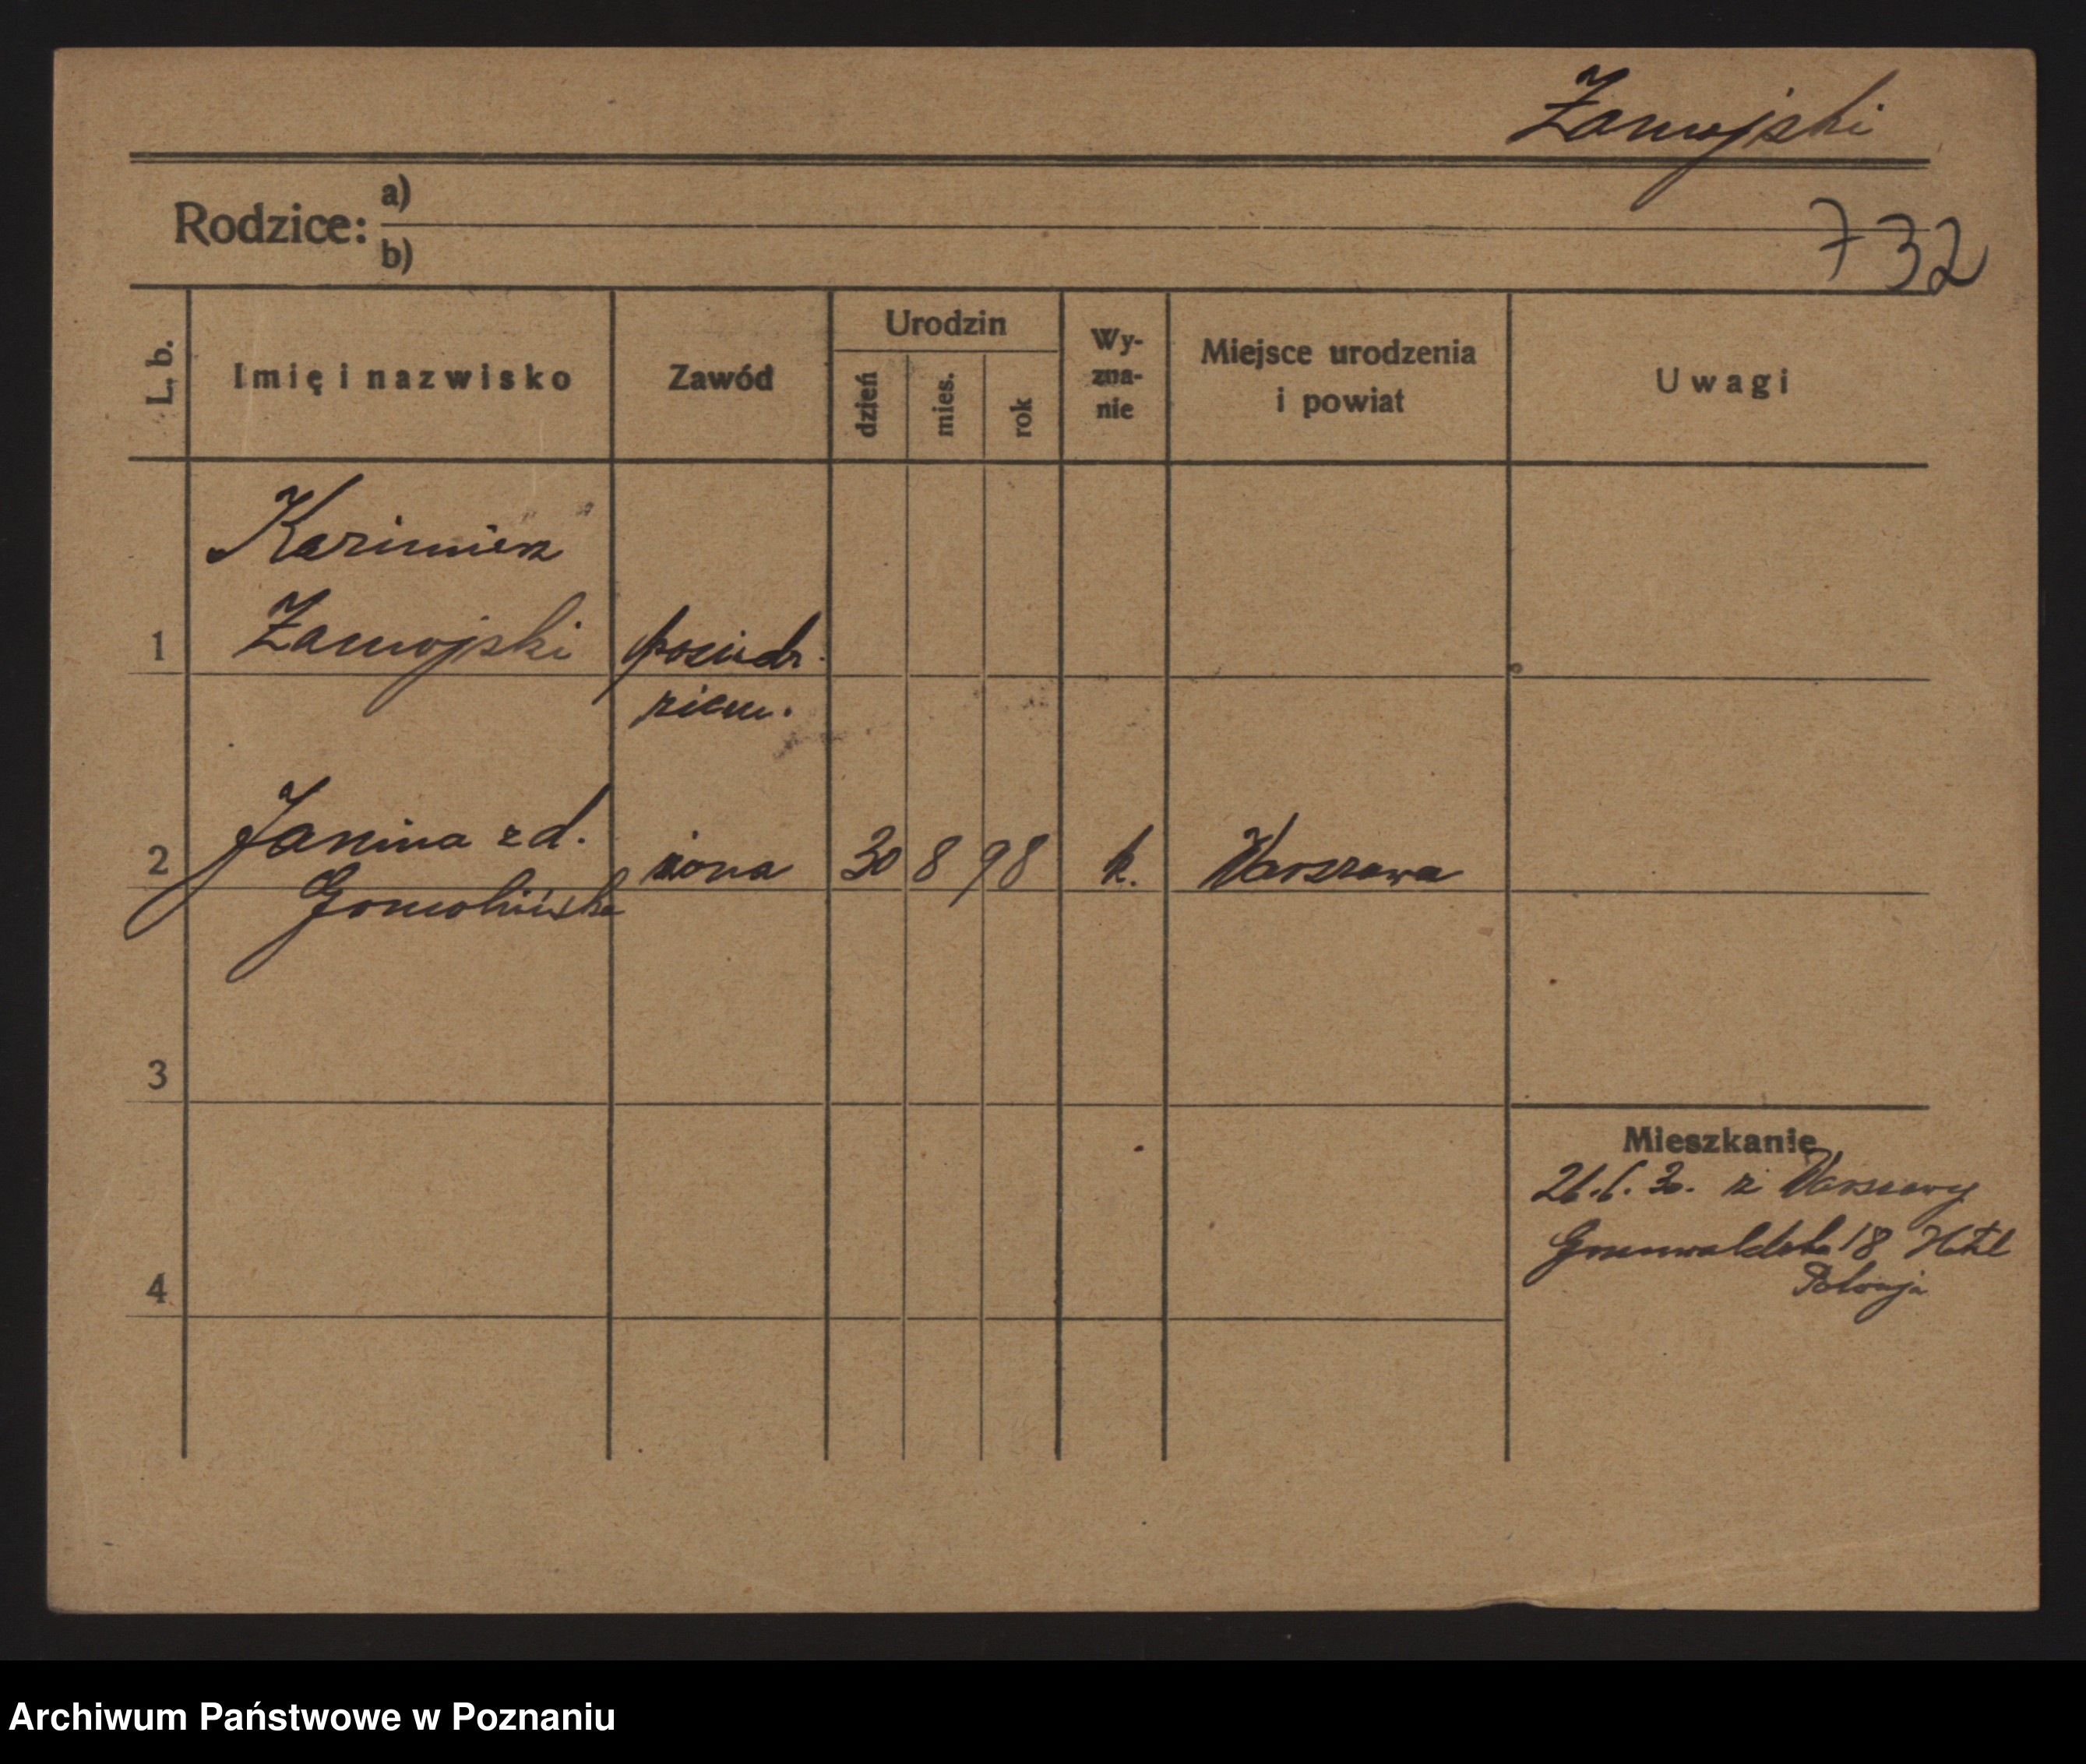 Zamojski
Rodzice: a)
b)
732
L. b. Imię i nazwisko Zawód Urodzin dzień mies. rok Wy-zna-nie Miejsce urodzenia i powiat Uwagi
Kazimierz
1 Zamojski posiedz.
ziem.
Janina z d.
2 żona 30 8 98 k. Warszawa
3
Mieszkanie
30. z Warszawy
Grunwaldzka 18 Hotel
4 Polonja
Archiwum Państwowe w Poznaniu